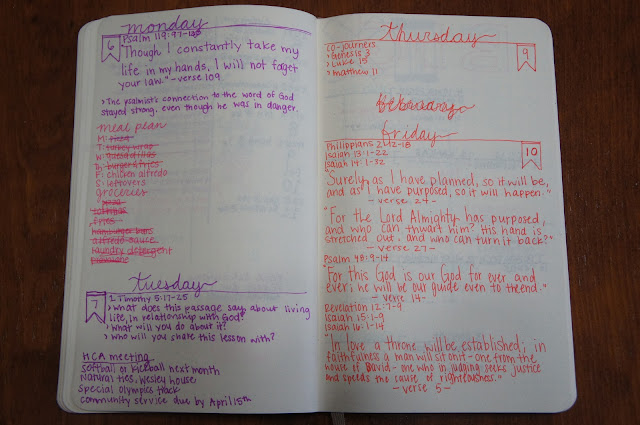 monday
6
Psalm 119:97-120
"Though I constantly take my
life in my hands, I will not forget
your law." -verse 109
> The psalmist's connection to the word of God
stayed strong, even though he was in danger.
meal plan
M:
T: turkey wrap
W: quesadillas
Th: burger & fries
F: chicken alfredo
S: leftovers
groceries
tortillas
fries
hamburger buns
alfredo sauce
laundry detergent
tuesday
7
1 Timothy 5:17-25
> What does this passage say about living
life in relationship with God?
> What will you do about it?
> Who will you share this lesson with?
HCA meeting
softball or kickball next month
Natural Ties, Wesley house
special olympics track
community service due by April 15th
thursday
9
co-journers
> Genesis 3
> Luke 15
> Matthew 11
friday
10
Philippians 2:12-18
Isaiah 13:1-22
Isaiah 14:1-32
"Surely, as I have planned, so it will be,
and as I have purposed, so it will happen."
- verse 24 -
"For the Lord Almighty has purposed,
and who can thwart him? His hand is
stretched out, and who can turn it back?"
- verse 27 -
Psalm 48:9-14
"For this God is our God for ever and
ever; he will be our guide even to the end."
- verse 14 -
Revelation 12:7-9
Isaiah 15:1-9
Isaiah 16:1-14
"In love a throne will be established; in
faithfulness a man will sit on it - one from the
house of David - one who in judging seeks justice
and speeds the cause of righteousness."
- verse 5 -